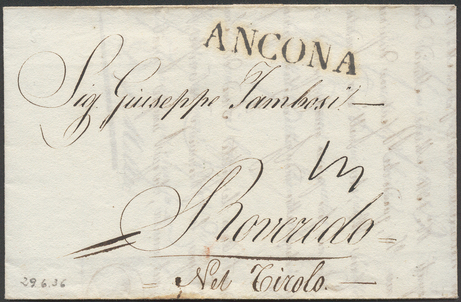 ANCONA
Sig Giuseppe Tambosi
Roveredo
Nel Tirolo.
29.6.36